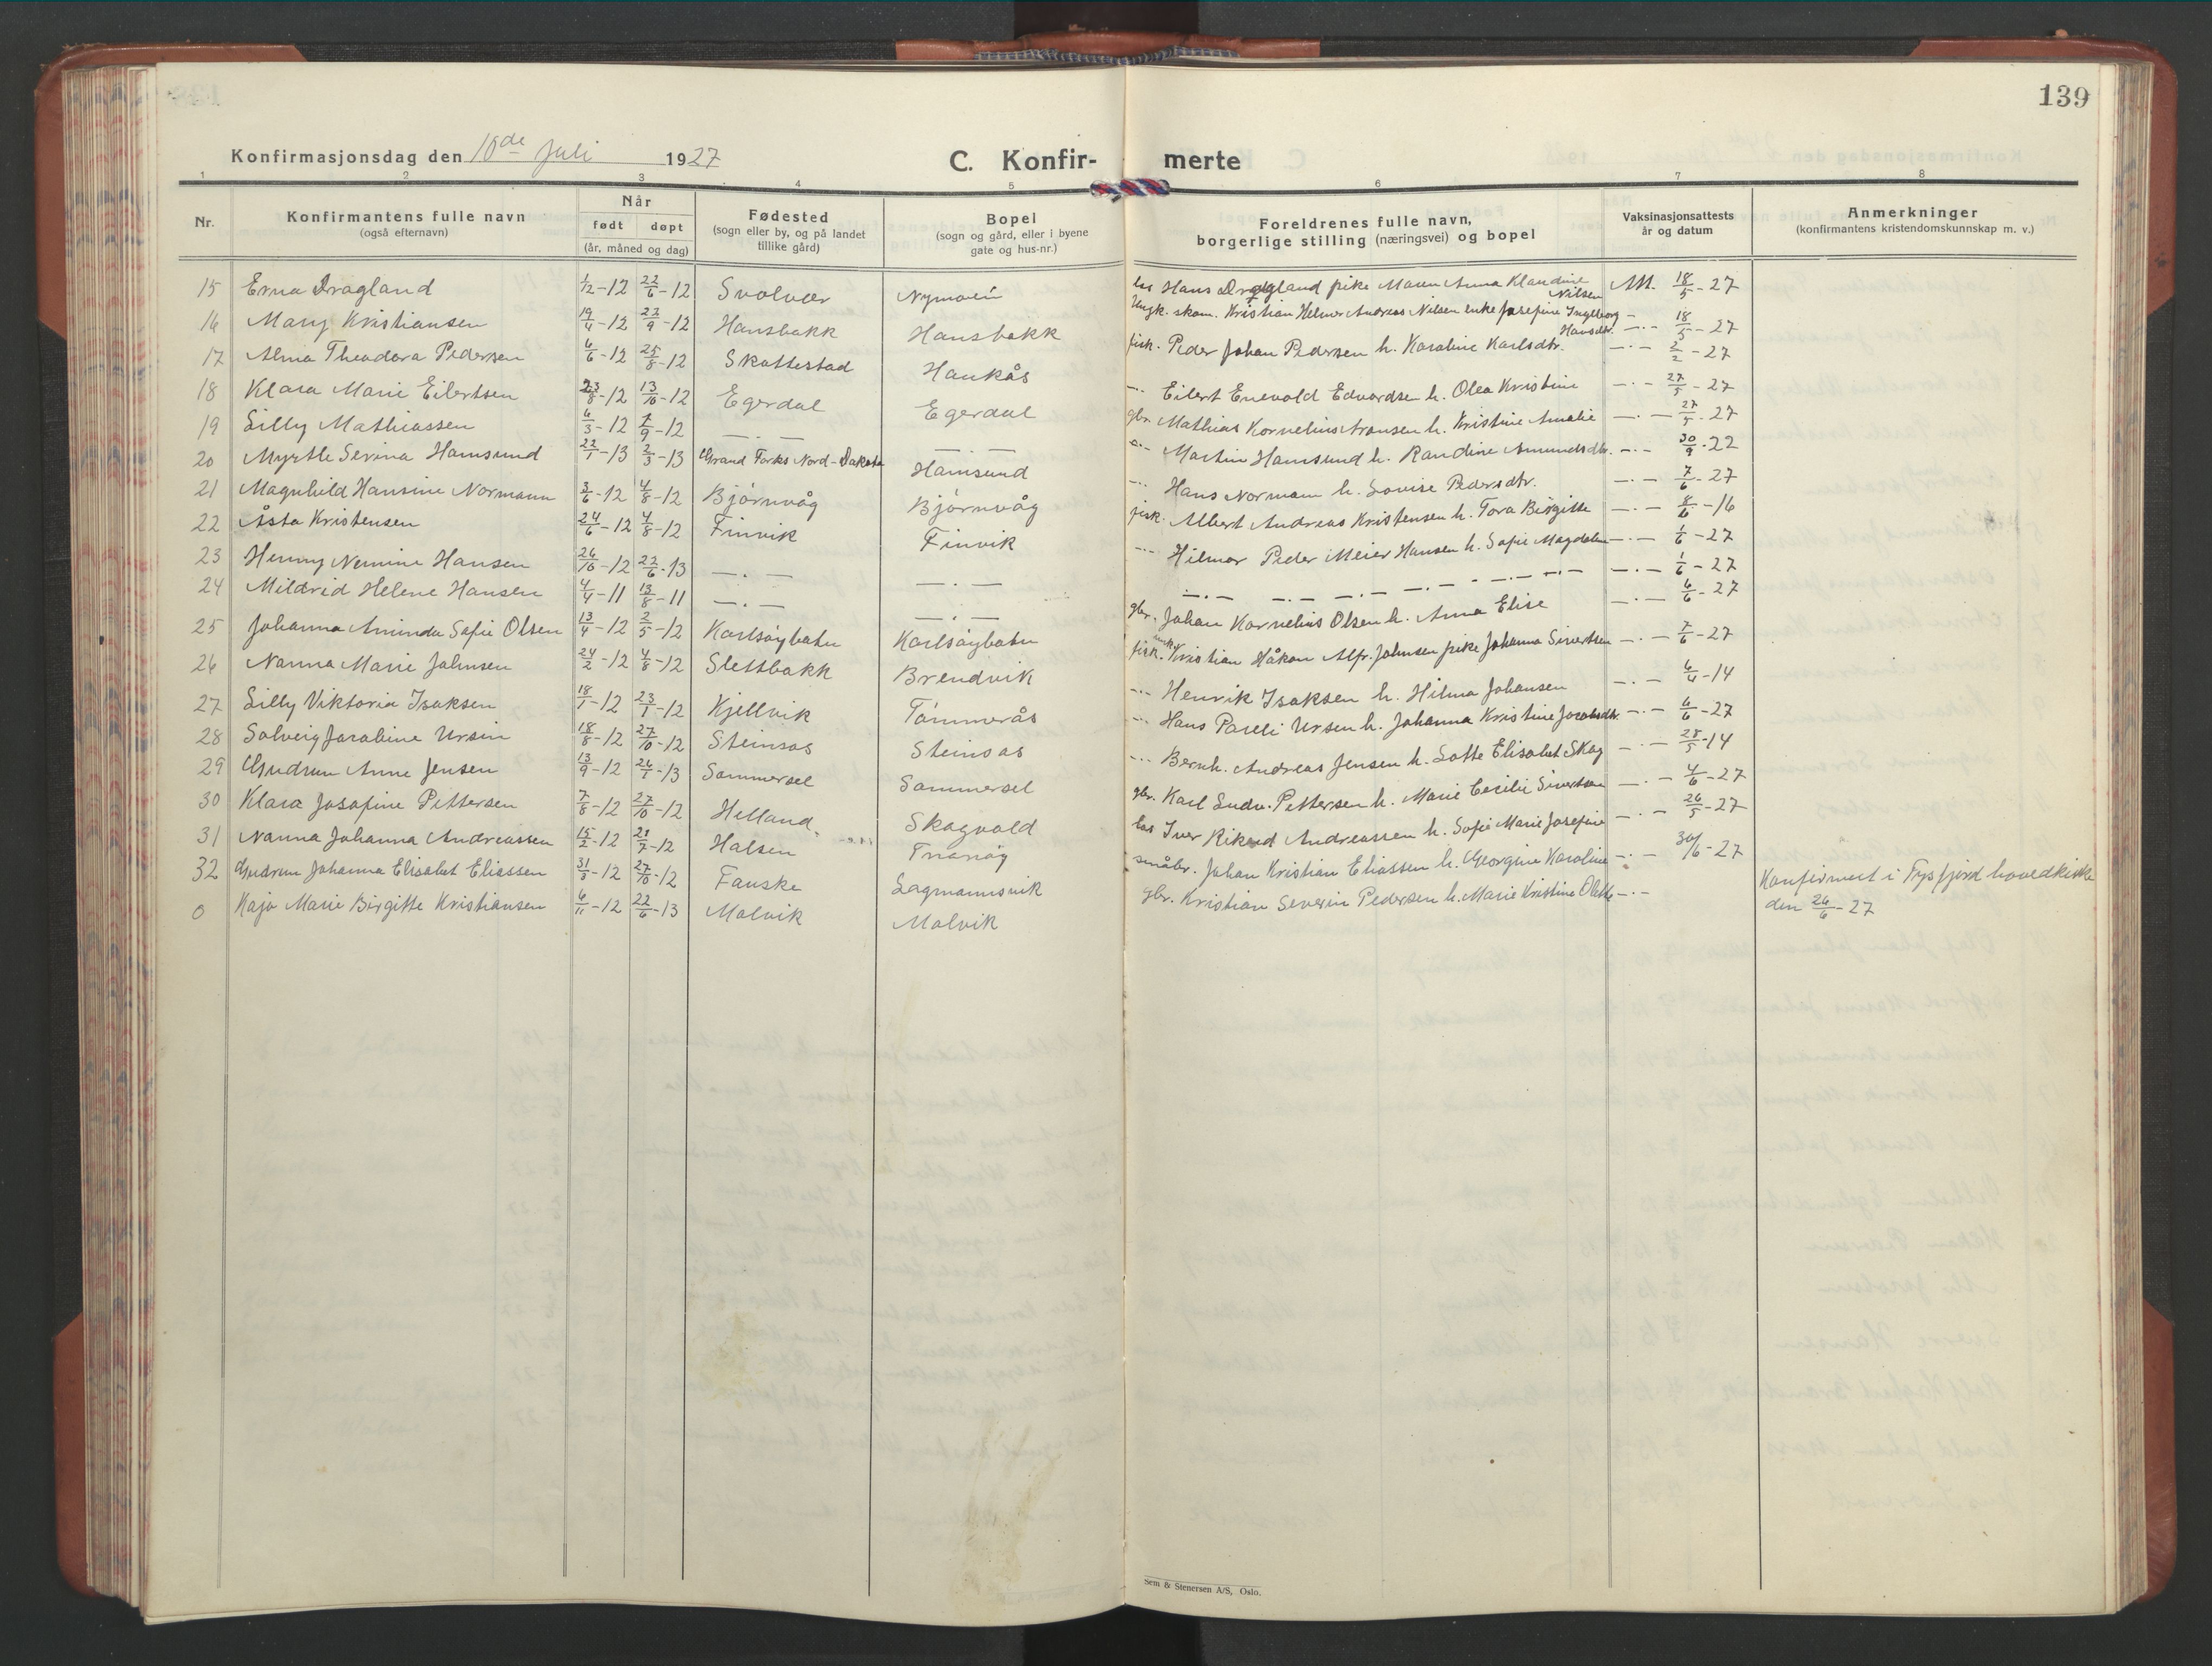 139
Konfirmasjonsdag den 10de juli 1927
C. Konfir- merte
1 2 3 4 5 6 7 8
Nr. Konfirmantens fulle navn (også efternavn) Når født døpt (år, måned og dag) Fødested (sogn eller by, og på landet tillike gård) Bopel (sogn og gård, eller i byene gate og hus-nr.) Foreldrenes fulle navn, borgerlige stilling (næringsvei) og bopel Vaksinasjonsattests år og datum Anmerkninger (konfirmantens kristendomskunnskap m. v.)
15 Erna Dragland 1/2-12 22/6-12 Svolvær Nymoen Hans Dragland pike Maren Anna Klaudine Nilsen M. 18/5-27
16 Mary Kristiansen 19/4-12 22/9-12 Hansbakk Hansbakk Ungk. skom. Kristian Helmer Andreas Nilsen enke Josefine Ingeborg Hansdtr. -.- 18/5-27
17 Alma Theodora Pedersen 6/6-12 25/8-12 Skattestad Haukås fisk. Peder Johan Pedersen h. Karoline Karlsdtr. -.- 2/2-27
18 Klara Marie Eilertsen 23/8-12 13/10-12 Egerdal Egerdal -.- Eilert Enevold Edvardsen h. Olea Kristine -.- 27/5-27
19 Lilly Mathiassen 6/3-12 1/9-12 -.- -.- gbr. Mathias Kornelius Aronsen h. Kristine Amalie -.- 27/5-27
20 Myrtle Serina Hamsund 22/1-13 2/3-13 Grand Forks Nord-Dakota Hamsund -.- Martin Hamsund h. Randine Amundsdtr. -.- 30/9-22
21 Magnhild Hansine Normann 3/6-12 4/8-12 Bjørnvåg Bjørnvåg -.- Hans Normann h. Lovise Pedersdtr. -.- 7/6-27
22 Åsta Kristensen 24/6-12 4/8-12 Finvik Finvik fisk. Albert Andreas Kristensen h. Tora Birgitte -.- 8/6-16
23 Henny Nemine Hansen 26/10-12 22/6-13 -.- -.- -.- Hilmar Peder Meier Hansen h. Sofie Magdalena -.- 1/6-27
24 Mildrid Helene Hansen 4/4-11 13/8-11 -.- -.- -.- -.- -.- -.- -.- -.- -.- 1/6-27
25 Johanna Aminda Sofie Olsen 13/4-12 2/5-12 Karlsøybatn Karlsøybatn gbr. Johan Kornelius Olsen h. Anna Elise -.- 6/6-27
26 Nanna Marie Johnsen 24/2-12 4/8-12 Slettbakk Brendvik fisk. Kristian Håkon Alfr. Johnsen pike Johanna Sivertsen -.- 7/6-27
27 Lilly Viktoria Isaksen 18/1-12 23/1-12 Kjellvik Tømmerås -.- Henrik Isaksen h. Hilma Johansen -.- 6/4-14
28 Solveig Jarabine Ursin 18/8-12 27/10-12 Steinsås Steinsås -.- Hans Pareli Ursen h. Johanna Kristine Jacobsdtr. -.- 6/6-27
29 Gudrun Anne Jensen 13/9-12 26/1-13 Sommersel Sommersel -.- Bernh. Andreas Jensen h. Lotte Elisabet Skog -.- 28/5-14
30 Klara Josefine Pettersen 7/8-12 27/10-12 Helland Skogvold gbr. Karl Ludv. Pettersen h. Marie Cecilie Sivertsen -.- 4/6-27
31 Nanna Johanna Andreassen 15/2-12 21/7-12 Halsen Tranøy los Iver Rikard Andreassen h. Sofie Marie Josefine -.- 26/5-27
32 Gudrun Johanna Elisabet Eliassen 31/3-12 27/10-12 Fauske Lagmannsvik småbr. Johan Kristian Eliassen h. Georgine Karoline -.- 30/6-27
0 Kaja Marie Birgitte Kristiansen 6/11-12 22/6-13 Malvik Malvik gbr. Kristian Severin Pedersen h. Marie Kristine Olette -.- Konfirmert i Tysfjord hovedkirke
den 26/6-27
Sem & Stenersen A/S, Oslo.